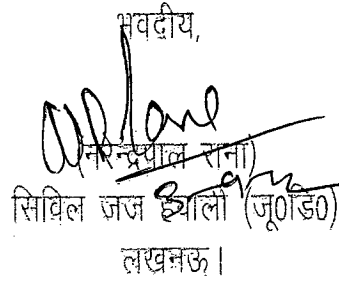 भवदीय,
(नरेन्द्रपाल राना)
सिविल जज हवाली (जू0डि0)
लखनऊ।